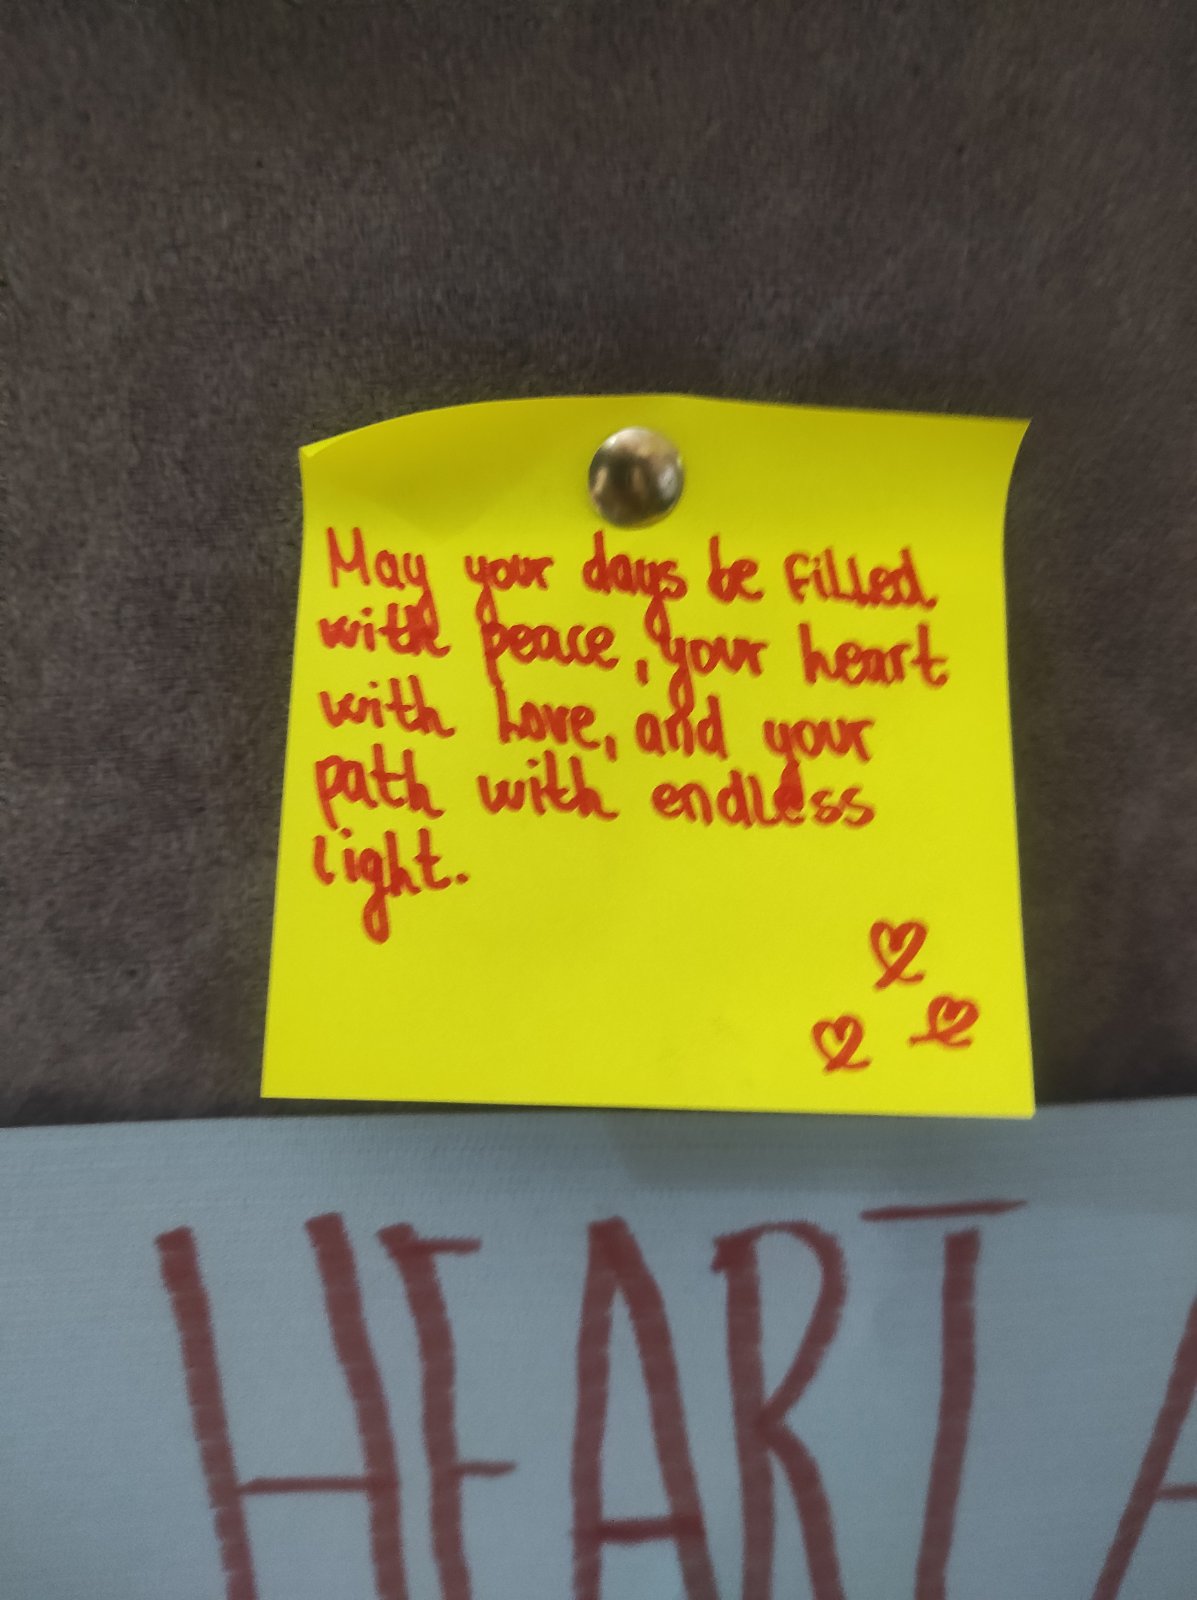 May your days be filled
with peace, your heart
with Love, and your
path with endless
light.
HEART A